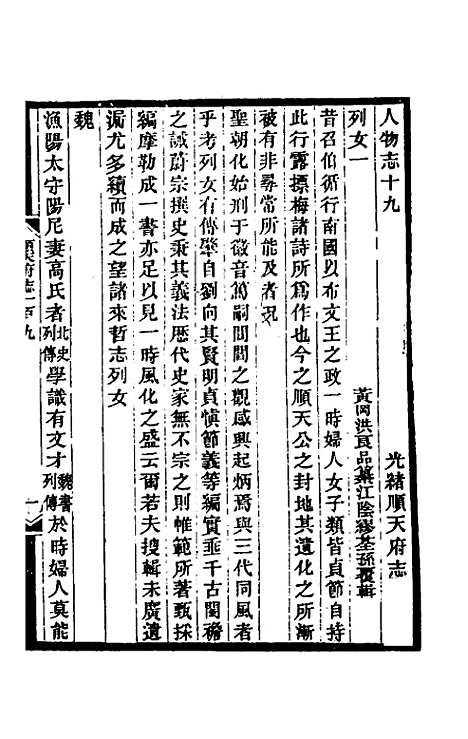 人物志十九　光緒順天府志
列女一　黃岡洪良品纂江陰繆荃孫覆輯
昔召伯循行南國以布文王之政一時婦人女子類皆貞節自持
此行露摽梅諸詩所爲作也今之順天公之封地其遺化之所漸
被有非尋常所能及者況
聖朝化始刑于徽音篤嗣閭閻之觀感興起炳焉與三代同風者
乎考列女有傳肇自劉向其賢明貞愼節義等編實亟千古閨襜
之誡蔚宗撰史秉其義法歷代史家無不宗之則帷範所著甄採
編摩勒成一書亦足以見一時風化之盛云爾若夫搜輯未廣遺
漏尤多續而成之望諸來哲志列女
魏
漁陽太守陽尼妻高氏者北史列傳學識有文才魏書列傳於時婦人莫能
順天府志一百九　一